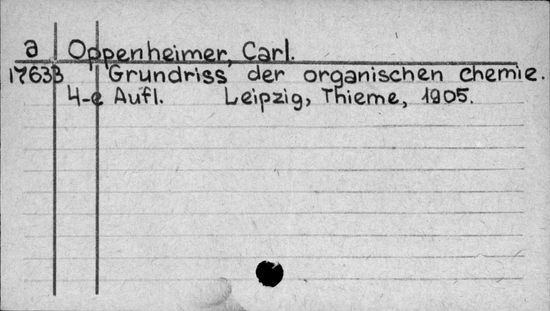 a Oppenheimer, Carl.
17633 Grundriss der organischen chemie.
4-e Aufl. Leipzig, Thieme, 1905.